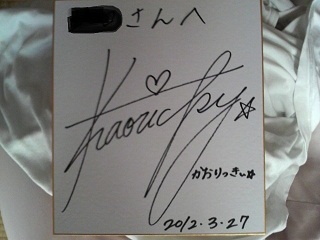 さんへ
Kaoricky☆
かおりっきぃ☆
2012.3.27